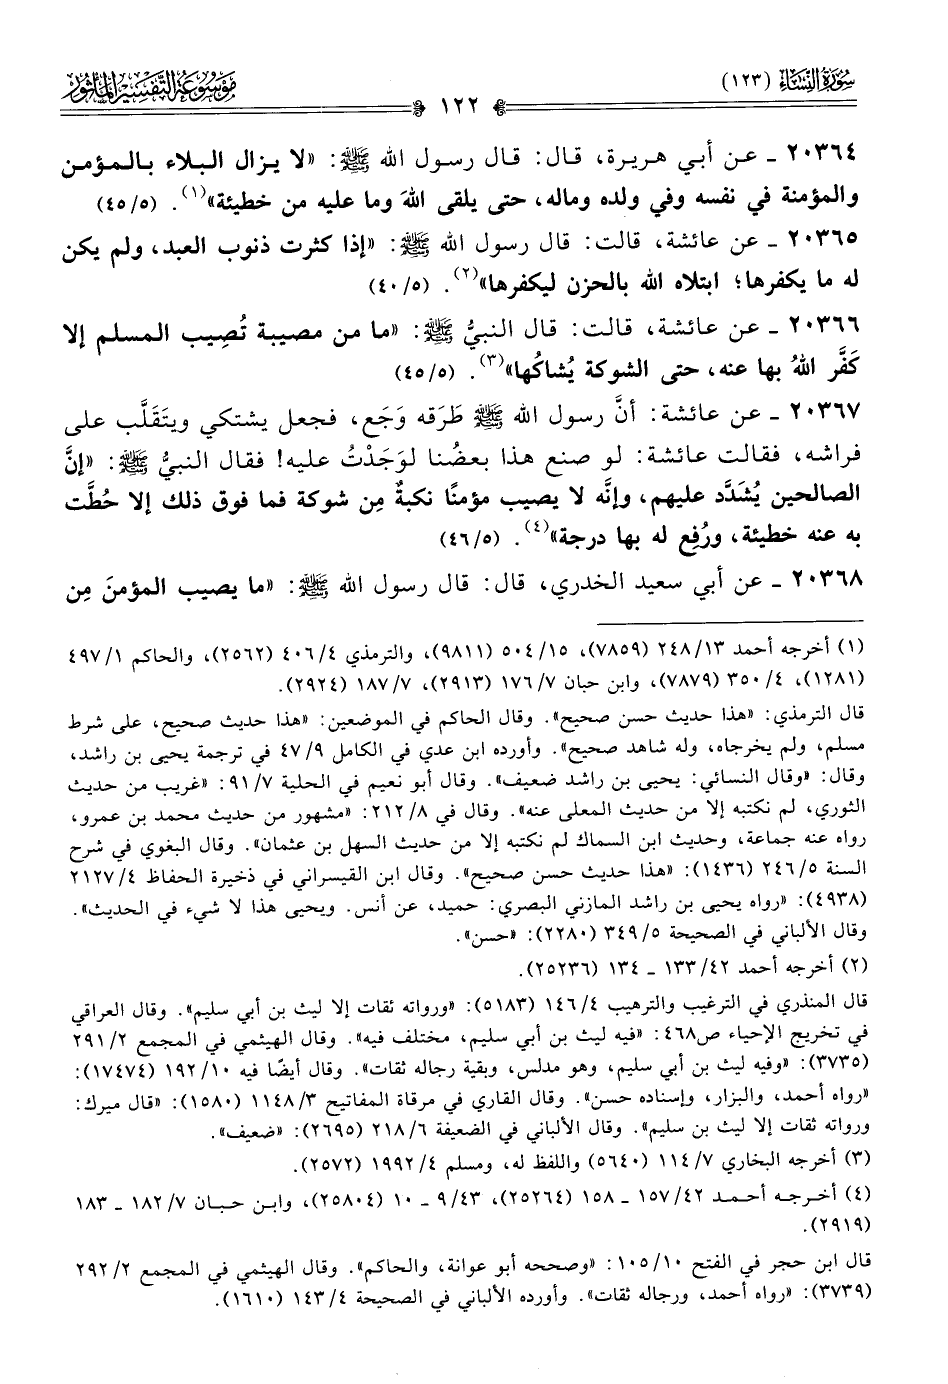 سُورَةُ النِّسَاءِ (١٢٣)
١٢٢
مَوْسُوعَةُ التَّفْسِيرِ المَأْثُور
٢٠٣٦٤ ـ عن أبي هريرة، قال: قال رسول الله ﷺ: «لا يزال البلاء بالمؤمن
والمؤمنة في نفسه وفي ولده وماله، حتى يلقى اللهَ وما عليه من خطيئة»(١). (٤٥/٥)
٢٠٣٦٥ ـ عن عائشة، قالت: قال رسول الله ﷺ: «إذا كثرت ذنوب العبد، ولم يكن
له ما يكفرها؛ ابتلاه الله بالحزن ليكفرها»(٢). (٤٠/٥)
٢٠٣٦٦ ـ عن عائشة، قالت: قال النبيُّ ﷺ: «ما من مصيبة تُصِيب المسلم إلا
كَفَّر اللهُ بها عنه، حتى الشوكة يُشاكُها»(٣). (٤٥/٥)
٢٠٣٦٧ ـ عن عائشة: أنَّ رسول الله ﷺ طَرَقه وَجَع، فجعل يشتكي ويتَقَلَّب على
فراشه، فقالت عائشة: لو صنع هذا بعضُنا لوَجَدْتُ عليه! فقال النبيُّ ﷺ: «إنَّ
الصالحين يُشَدَّد عليهم، وإنَّه لا يصيب مؤمنًا نكبةٌ مِن شوكة فما فوق ذلك إلا حُطَّت
به عنه خطيئة، ورُفِع له بها درجة»(٤). (٤٦/٥)
٢٠٣٦٨ ـ عن أبي سعيد الخدري، قال: قال رسول الله ﷺ: «ما يصيب المؤمنَ مِن
(١) أخرجه أحمد ٢٤٨/١٣ (٧٨٥٩)، ٥٠٤/١٥ (٩٨١١)، والترمذي ٤٠٦/٤ (٢٥٦٢)، والحاكم ٤٩٧/١
(١٢٨١)، ٣٥٠/٤ (٧٨٧٩)، وابن حبان ١٧٦/٧ (٢٩١٣)، ١٨٧/٧ (٢٩٢٤).
قال الترمذي: «هذا حديث حسن صحيح». وقال الحاكم في الموضعين: «هذا حديث صحيح، على شرط
مسلم، ولم يخرجاه، وله شاهد صحيح». وأورده ابن عدي في الكامل ٤٧/٩ في ترجمة يحيى بن راشد،
وقال: «وقال النسائي: يحيى بن راشد ضعيف». وقال أبو نعيم في الحلية ٩١/٧: «غريب من حديث
الثوري، لم نكتبه إلا من حديث المعلى عنه». وقال في ٢١٢/٨: «مشهور من حديث محمد بن عمرو،
رواه عنه جماعة، وحديث ابن السماك لم نكتبه إلا من حديث السهل بن عثمان». وقال البغوي في شرح
السنة ٢٤٦/٥ (١٤٣٦): «هذا حديث حسن صحيح». وقال ابن القيسراني في ذخيرة الحفاظ ٢١٢٧/٤
(٤٩٣٨): «رواه يحيى بن راشد المازني البصري: حميد، عن أنس. ويحيى هذا لا شيء في الحديث».
وقال الألباني في الصحيحة ٣٤٩/٥ (٢٢٨٠): «حسن».
(٢) أخرجه أحمد ١٣٣/٤٢ ـ ١٣٤ (٢٥٢٣٦).
قال المنذري في الترغيب والترهيب ١٤٦/٤ (٥١٨٣): «ورواته ثقات إلا ليث بن أبي سليم». وقال العراقي
في تخريج الإحياء ص٤٦٨: «فيه ليث بن أبي سليم، مختلف فيه». وقال الهيثمي في المجمع ٢٩١/٢
(٣٧٣٥): «وفيه ليث بن أبي سليم، وهو مدلس، وبقية رجاله ثقات». وقال أيضًا فيه ١٩٢/١٠ (١٧٤٧٤):
«رواه أحمد، والبزار، وإسناده حسن». وقال القاري في مرقاة المفاتيح ١١٤٨/٣ (١٥٨٠): «قال ميرك:
ورواته ثقات إلا ليث بن سليم». وقال الألباني في الضعيفة ٢١٨/٦ (٢٦٩٥): «ضعيف».
(٣) أخرجه البخاري ١١٤/٧ (٥٦٤٠) واللفظ له، ومسلم ١٩٩٢/٤ (٢٥٧٢).
(٤) أخرجه أحمد ١٥٧/٤٢ ـ ١٥٨ (٢٥٢٦٤)، ٩/٤٣ ـ ١٠ (٢٥٨٠٤)، وابن حبان ١٨٢/٧ ـ ١٨٣
(٢٩١٩).
قال ابن حجر في الفتح ١٠٥/١٠: «وصححه أبو عوانة، والحاكم». وقال الهيثمي في المجمع ٢٩٢/٢
(٣٧٣٩): «رواه أحمد، ورجاله ثقات». وأورده الألباني في الصحيحة ١٤٣/٤ (١٦١٠).